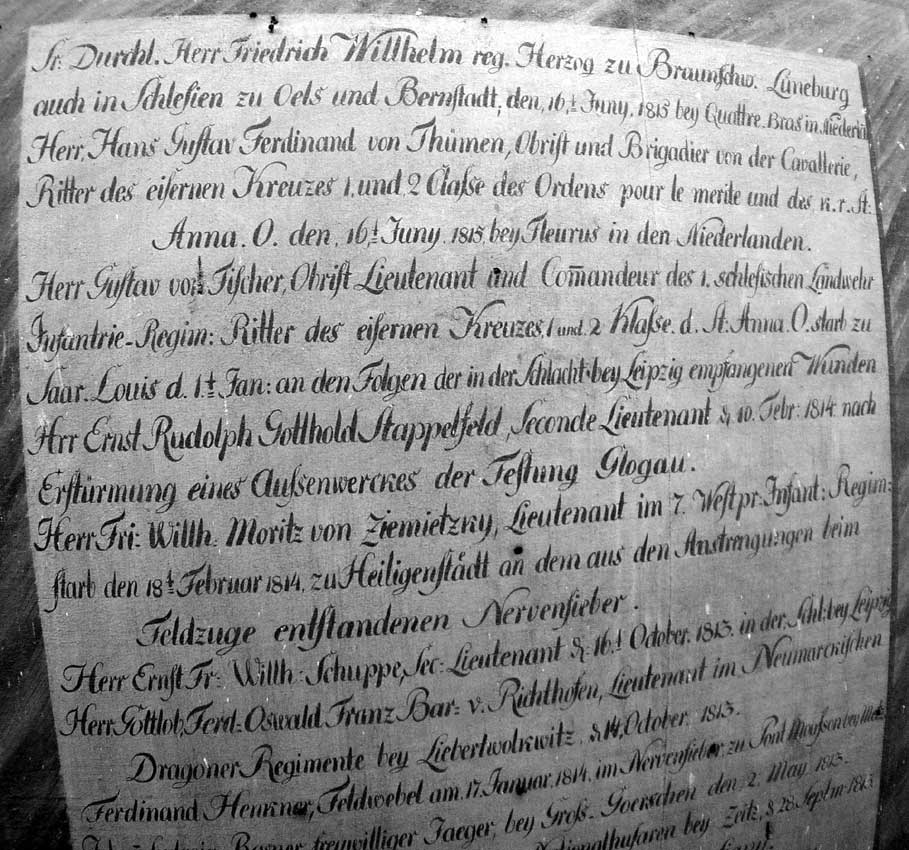 Sr. Durchl. Herr Friedrich Willhelm reg. Herzog zu Braunschw. Lüneburg
auch in Schlesien zu Oels und Bernstadt, den, 16,t Juny, 1815 bey Quattre-Bras in
Herr, Hans Gustav Ferdinand von Thümen, Obrist und Brigadier von der Cavallerie,
Ritter des eisernen Kreuzes 1. und 2 Classe des Ordens pour le merite und des K. r. St.
Anna. O. den, 16,t Juny, 1815, bey Fleurus in den Niederlanden.
Herr Gustav von Fischer, Obrist Lieutenant und Com̄andeur des 1. schlesischen Landwehr
Infantrie-Regim: Ritter des eisernen Kreuzes, 1 und 2 Klasse. d. St. Anna. O. starb zu
Saar. Louis d. 1,t Jan: an den Folgen der in der Schlacht bey Leipzig empfangenen Wunden
Hrr Ernst Rudolph Gotthold Stappelfeld, Seconde Lieutenant d, 10. Febr: 1814. nach
Erstürmung eines Aussenwerckes der Festung Glogau.
Herr Fri: Willh: Moritz von Ziemietzky, Lieutenant im 7. Westpr. Infant: Regim:
starb den 18,t Februar 1814, zu Heiligenstädt an dem aus den Anstrengungen beim
Feldzuge entstandenen Nervenfieber.
Herr Ernst Fr: Willh: Schuppe, Sec: Lieutenant d, 16,t October, 1813. in der Schl: bey Leipzig
Herr Gottlob, Ferd: Oswald Franz Bar: v. Richthofen, Lieutenant im Neumarckischen
Dragoner Regimente bey Liebertwolkwitz, d. 14, October, 1813.
Ferdinand Henkner, Feldwebel am, 17, Januar, 1814, im Nervenfieber, zu Pont bey
freiwilliger Jaeger, bey Gross-Goerschen den, 2. May 1813.
bey Zeitz, d. 28 Septm. 1813